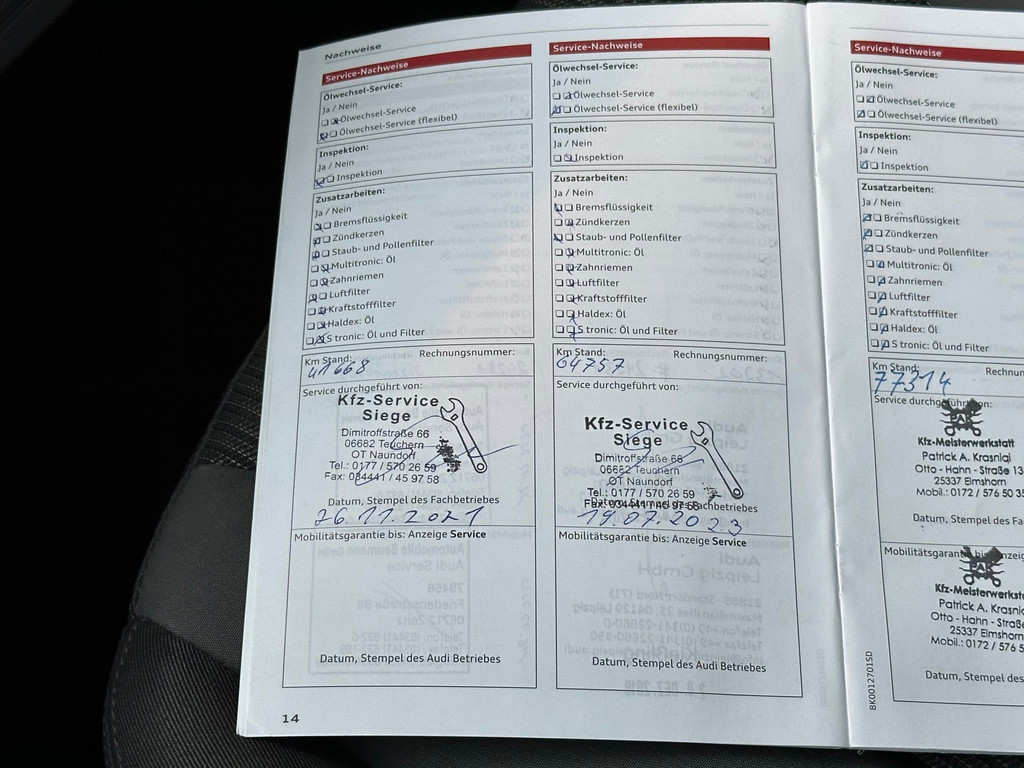 Nachweise
Service-Nachweise
Ölwechsel-Service:
Ja / Nein
Ölwechsel-Service
Ölwechsel-Service (flexibel)
Inspektion:
Ja / Nein
Inspektion
Zusatzarbeiten:
Ja / Nein
Bremsflüssigkeit
Zündkerzen
Staub- und Pollenfilter
Multitronic: Öl
Zahnriemen
Luftfilter
Kraftstofffilter
Haldex: Öl
S tronic: Öl und Filter
Km Stand:
Rechnungsnummer:
41668
Service durchgeführt von:
Kfz-Service
Siege
Dimitroffstraße 66
06682 Teuchern
OT Naundorf
Tel.: 0177 / 570 26 59
Fax: 034441 / 45 97 58
Datum, Stempel des Fachbetriebes
26.11.2021
Mobilitätsgarantie bis: Anzeige Service
Datum, Stempel des Audi Betriebes
14
Service-Nachweise
Ölwechsel-Service:
Ja / Nein
Ölwechsel-Service
Ölwechsel-Service (flexibel)
Inspektion:
Ja / Nein
Inspektion
Zusatzarbeiten:
Ja / Nein
Bremsflüssigkeit
Zündkerzen
Staub- und Pollenfilter
Multitronic: Öl
Zahnriemen
Luftfilter
Kraftstofffilter
Haldex: Öl
S tronic: Öl und Filter
Km Stand:
Rechnungsnummer:
64757
Service durchgeführt von:
Kfz-Service
Siege
Dimitroffstraße 66
06682 Teuchern
OT Naundorf
Tel.: 0177 / 570 26 59
Fax: 034441 / 45 97 58
Datum, Stempel des Fachbetriebes
19.07.2023
Mobilitätsgarantie bis: Anzeige Service
Datum, Stempel des Audi Betriebes
Service-Nachweise
Ölwechsel-Service:
Ja / Nein
Ölwechsel-Service
Ölwechsel-Service (flexibel)
Inspektion:
Ja / Nein
Inspektion
Zusatzarbeiten:
Ja / Nein
Bremsflüssigkeit
Zündkerzen
Staub- und Pollenfilter
Multitronic: Öl
Zahnriemen
Luftfilter
Kraftstofffilter
Haldex: Öl
S tronic: Öl und Filter
Km Stand:
Rechnun
77314
Service durchgeführt von:
Kfz-Meisterwerkstatt
Patrick A. Krasniqi
Otto - Hahn - Straße 13
25337 Elmshorn
Mobil.: 0172 / 576 50 35
Datum, Stempel des Fa
Mobilitätsgarantie bis: Anzeig
Kfz-Meisterwerksta
Patrick A. Krasniq
Otto - Hahn - Straße
25337 Elmshorn
Mobil.: 0172 / 576 5
Datum, Stempel des
8K0012701SD